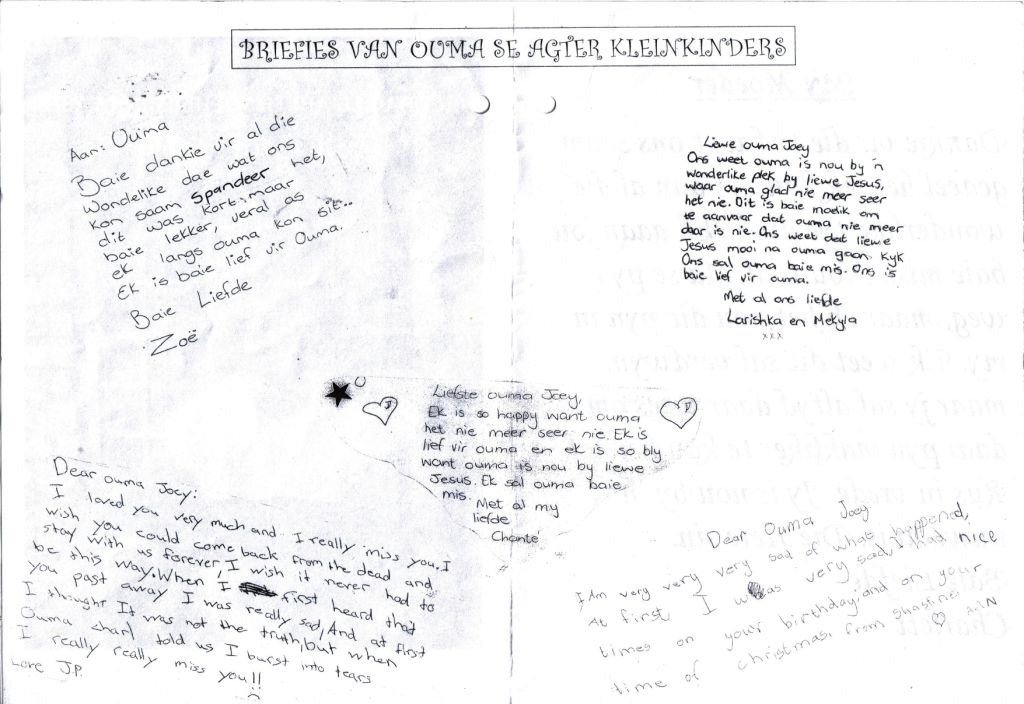 BRIEFIES VAN OUMA SE AGTER KLEINKINDERS
Aan: Ouma
Baie dankie vir al die
Wondelike dae wat ons
kon saam spandeer het,
dit was kort maar
baie lekker, veral as
ek langs ouma kon sit...
Ek is baie lief vir Ouma.
Baie Liefde
Zoë
Liewe ouma Joey
Ons weet ouma is nou by 'n
wonderlike plek by liewe Jesus,
waar ouma glad nie meer seer
het nie. Dit is baie moeilik om
te aanvaar dat ouma nie meer
daar is nie. Ons weet dat liewe
Jesus mooi na ouma gaan kyk
Ons sal ouma baie mis. Ons is
baie lief vir ouma.
Met al ons liefde
Larishka en Mekyla
xxx
Liefste ouma Joey,
Ek is so happy want ouma
het nie meer seer nie. Ek is
lief vir ouma en ek is so bly
want ouma is nou by liewe
Jesus. Ek sal ouma baie
mis.
Met al my
liefde
Chanté
Dear ouma Joey:
I loved you very much and I really miss you. I
wish you could come back from the dead and
stay with us forever, I wish it never had to
be this way. When I first heard that
you past away I was really sad, And at first
I thought It was not the truth, but when
Ouma charl told us I burst into tears
I really really miss you!!
Love J.P.
Dear Ouma Joey
I Am very very very sad of what happend,
At first I was very sad. I had nice
times on your birthday, and on your
time of christmas. from